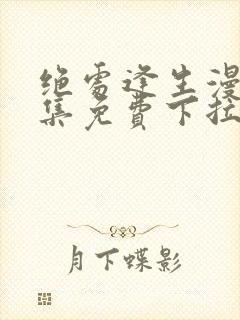 绝处逢生漫
集免费下拉
月下蝶影